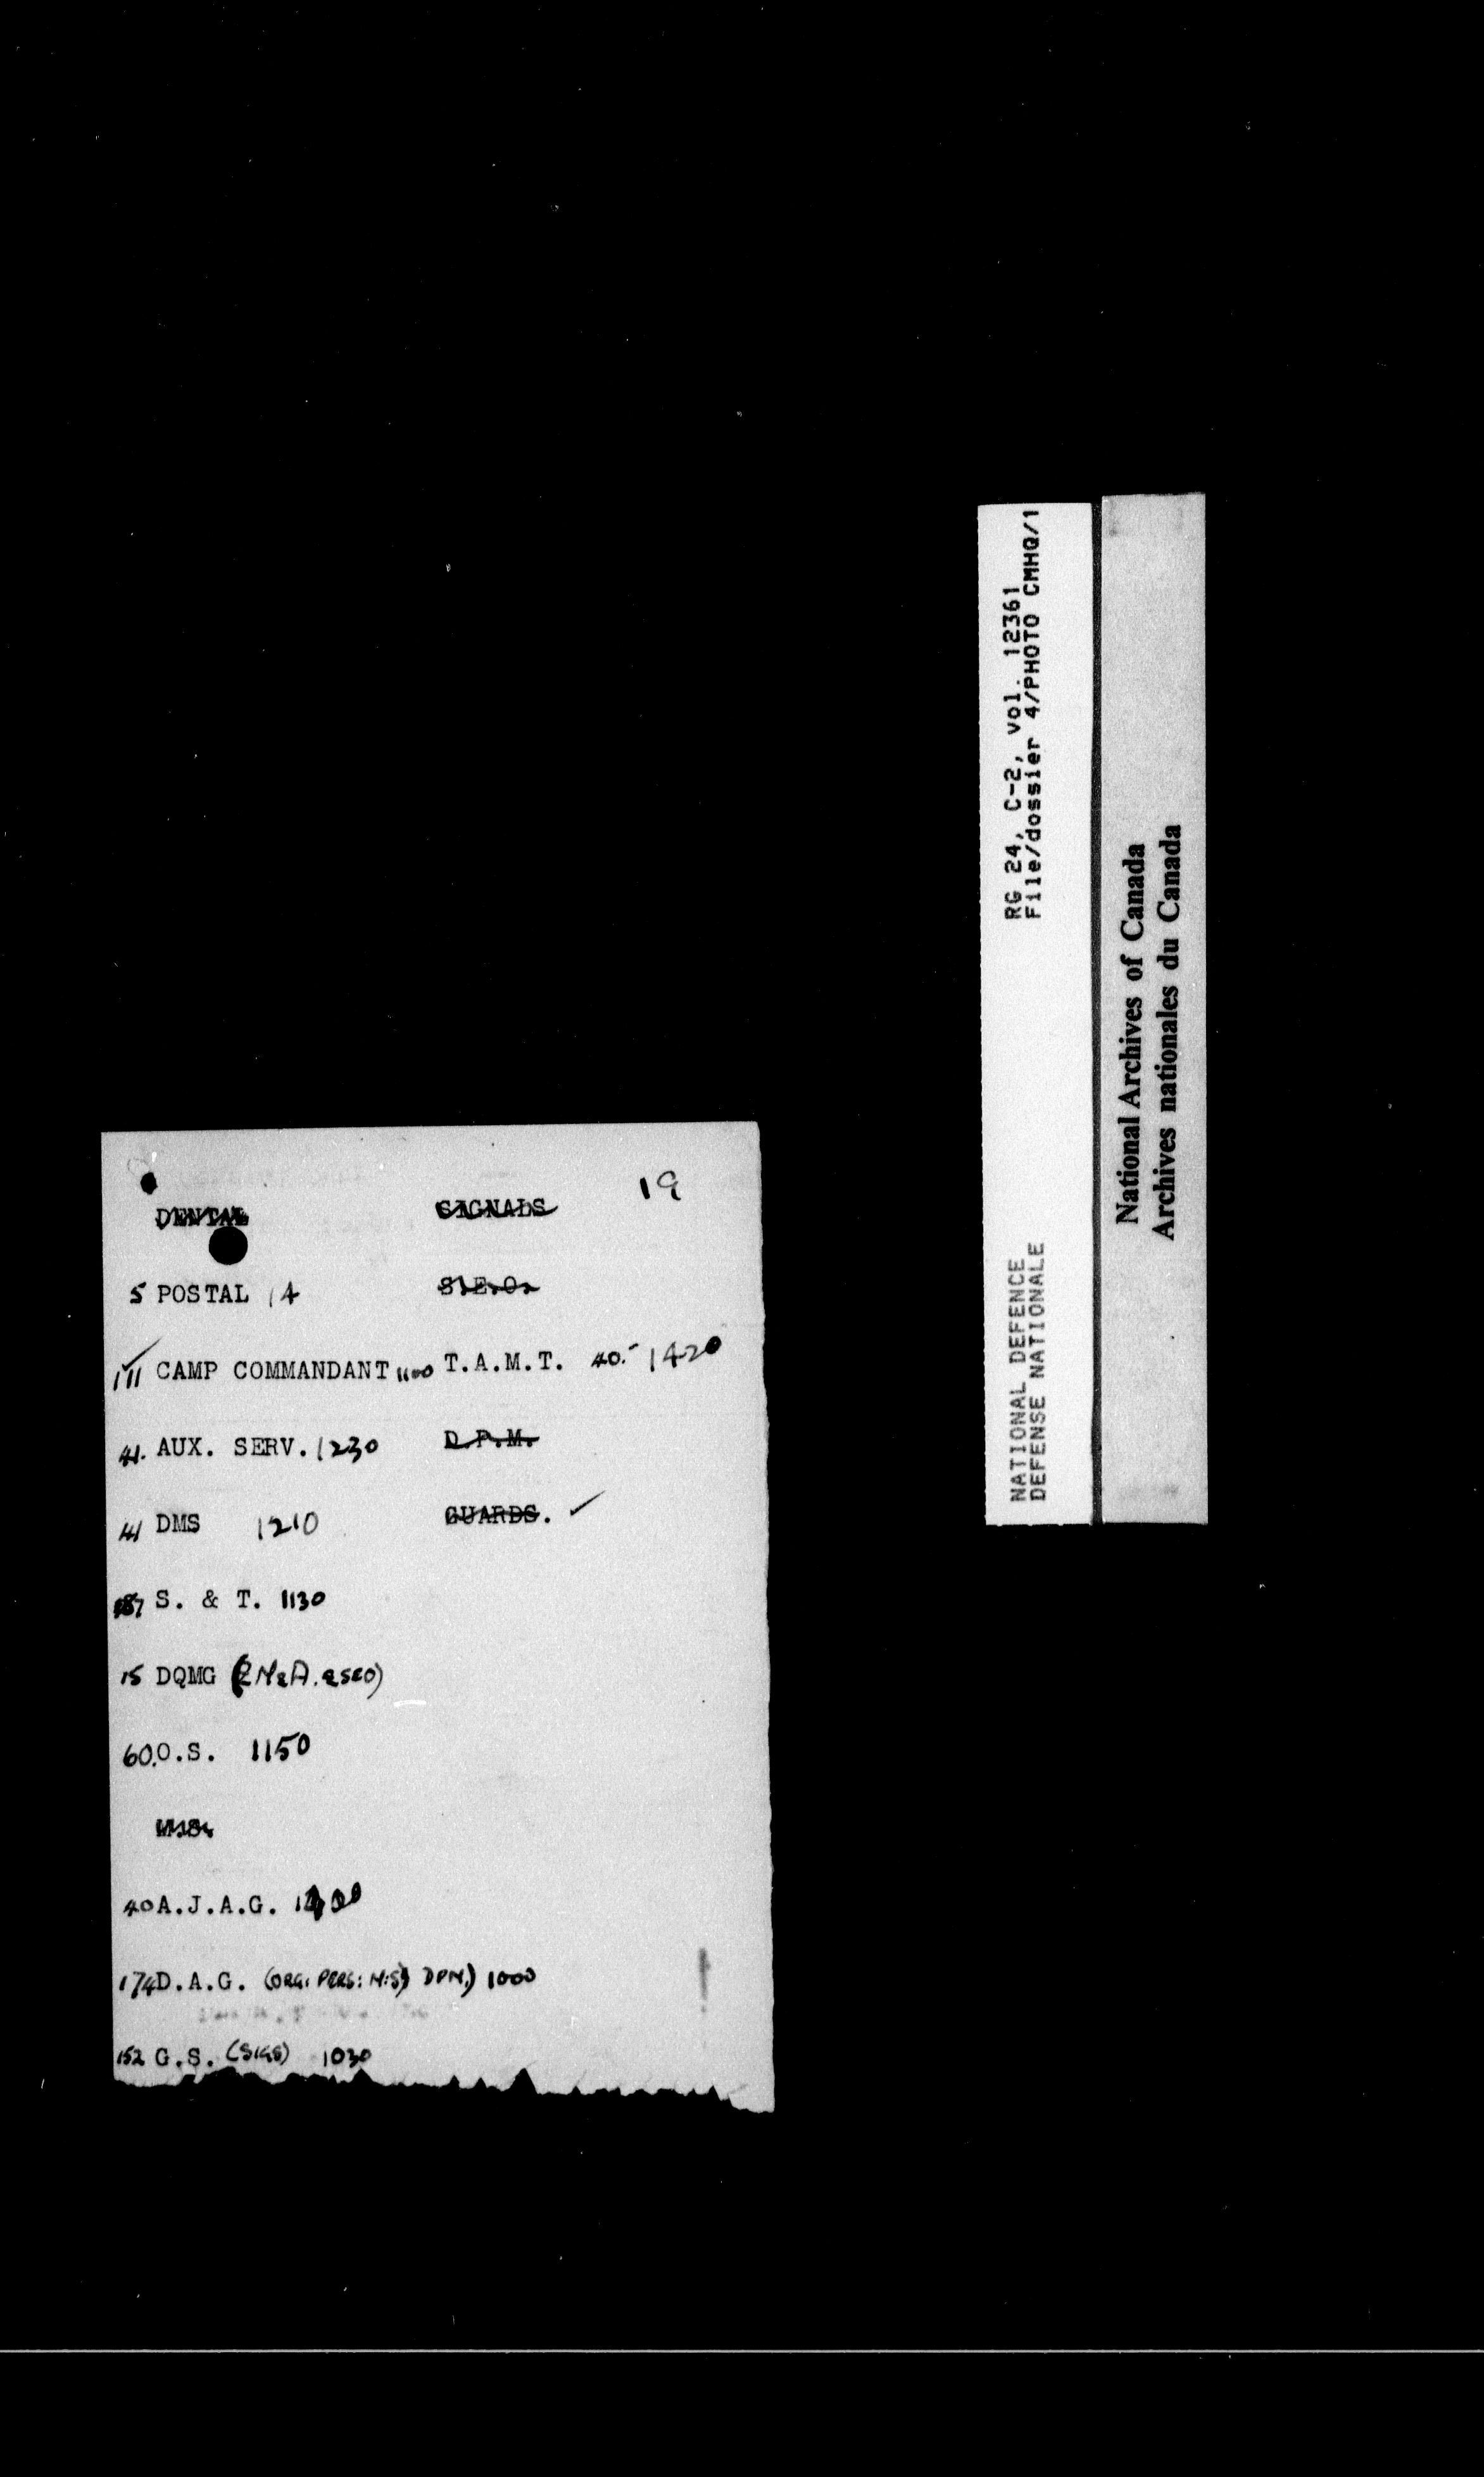 19
DENTAL SIGNALS
5 POSTAL 14 S.E.O.
111 CAMP COMMANDANT 1100 T.A.M.T. 40. 1420
41. AUX. SERV. 1230 D.P.M.
41 DMS 1210 GUARDS.
187 S. & T. 1130
15 DQMG
60. O.S. 1150
M.S.
40 A.J.A.G.
174 D.A.G. (ORG: PERS: M.S) DPM.) 1000
152 G.S. (SIGS) 1030
RG 24, C-2, vol. 12361
File/dossier 4/PHOTO CMHQ/1
NATIONAL DEFENCE
DEFENSE NATIONALE
National Archives of Canada
Archives nationales du Canada